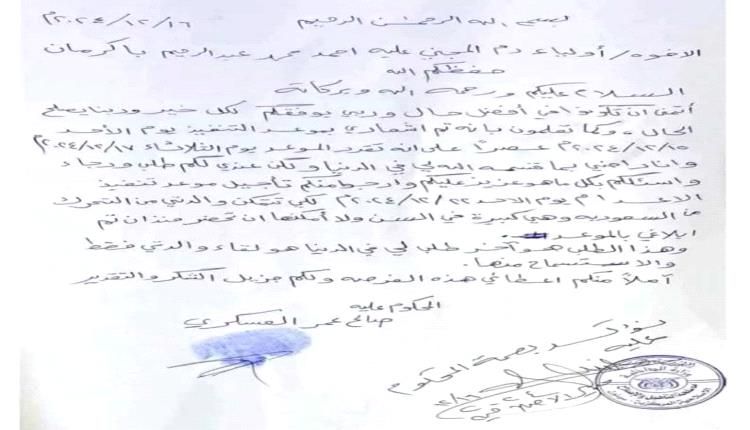 بسم الله الرحمن الرحيم ٢٠٢٤/١٢/١٦م
الاخوة/ أولياء دم المجني عليه احمد محمد عبدالرحيم باكرمان
حفظكم الله
السلام عليكم ورحمة الله وبركاته
أتمنى ان تكونوا في أفضل حال وربي يوفقكم لكل خير وربنا يصلح
الحال، وكما تعلمون بانه تم اشعاري بموعد التنفيذ يوم الأحد
٢٠٢٤/١٢/١٥م عصراً على انه تقرر الموعد يوم الثلاثاء ٢٠٢٤/١٢/١٧م
وانا راضي بما قسمه الله لي في الدنيا ولكن عندي لكم طلب ورجاء
واسئلكم بكل ماهو عزيز عليكم وارجوا منكم تأجيل موعد تنفيذ
الاعدام يوم الاحد ٢٠٢٤/١٢/٢٢م لكي تتمكن والدتي من التحرك
من السعودية وهي كبيرة في السن ولا أمكنها ان تحضر منذ ان تم
ابلاغي بالموعد.
وهذا الطلب هو آخر طلب لي في الدنيا هو لقاء والدتي فقط
والاستسماح منها.
آملاً منكم اعطائي هذه الفرصه ولكم جزيل الشكر والتقدير
المحكوم عليه
صالح عمر العسكري
نؤكد بصمة المحكوم
عليه